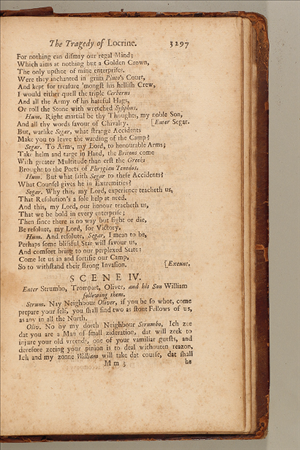 The Tragedy of Locrine. 3297
For nothing can dismay our regal Minds
Which aims at nothing but a Golden Crown,
The only upshot of mine enterprises.
Were they enchanted in grim Pluto's Court,
And kept for treasure 'mongst his hellish Crew,
I would either quell the triple Cerberus
And all the Army of his hateful Hags,
Or roll the Stone with wretched Sysiphus.
Hum. Right martial be thy Thoughts, my noble Son,
And all thy words savour of Chivalry. [Enter Segar.
But, warlike Segar, what strange Accidents
Make you to leave the warding of the Camp?
Segar. To Arms, my Lord, to honourable Arms;
Take helm and targe in Hand, the Britons come
With greater Multitude than erst the Greeks
Brought to the Ports of Phrygian Tenedos.
Hum. But what saith Segar to these Accidents?
What Counsel gives he in Extremities?
Segar. Why this, my Lord, experience teacheth us,
That Resolution's a sole help at need.
And this, my Lord, our honour teacheth us,
That we be bold in every enterprise;
Then since there is no way but fight or die,
Be resolute, my Lord, for Victory.
Hum. And resolute, Segar, I mean to be,
Perhaps some blisful Star will favour us,
And comfort bring to our perplexed State:
Come let us in and fortifie our Camp,
So to withstand their strong Invasion. [Exeunt.
SCENE IV.
Enter Strumbo, Trompart, Oliver, and his Son William
following them.
Strum. Nay Neighbour Oliver, if you be so whot, come
prepare your self, you shall find two as stout Fellows of us,
as any in all the North.
Oliv. No by my dorth Neighbour Strumbo, Ich zee
dat you are a Man of small zideration, dat will zeek to
injure your old vreends, one of your vamiliar guests, and
derefore zeeing your pinion is to deal withouten reazon,
Ich and my zonne William will take dat course, dat shall
M m 3 be